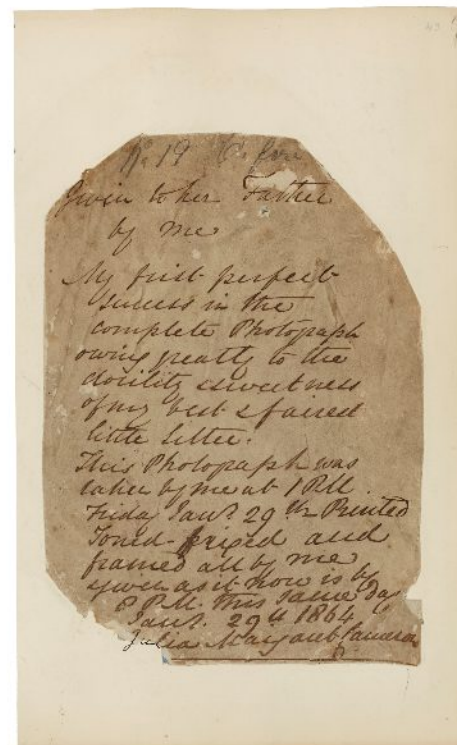 No 19
Given to her Father
by me
My first perfect
success in the
complete Photograph
owing greatly to the
docility & sweetness
of my best & fairest
little sitter.
This Photograph was
taken by me at 1 P.M.
Friday Jany. 29th Printed
Toned - fixed and
framed all by me
given as it now is by
8 P.M. this same day
Jany. 29th 1864
Julia Margaret Cameron